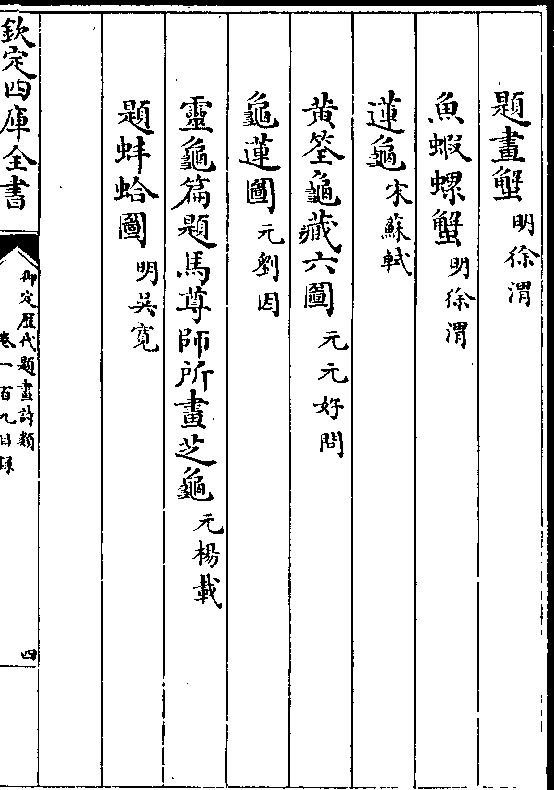 題畫蟹 明徐渭
魚蝦螺蟹 明徐渭
蓮龜 宋蘇軾
黄筌龜藏六圖 元元好問
龜蓮圖 元劉因
靈龜篇題馬尊師所畫芝龜 元楊載
題蚌蛤圖 明吳寛
欽定四庫全書
御定歷代題畫詩類
卷一百九目錄
四